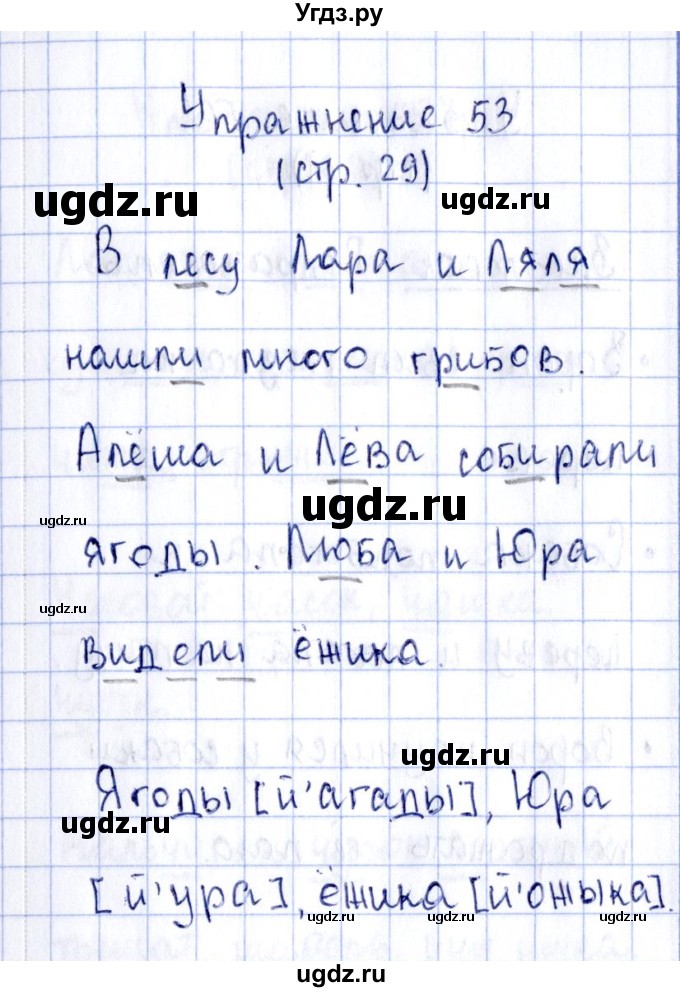 Угдз.ру
Упражнение 53
(стр. 29)
ugdz.ru
ugdz.ru
В лесу Лара и Ляля
нашли много грибов.
Алёша и Лёва собирали
ugdz.ru
ugdz.ru
ягоды. Люба и Юра
ugdz.ru
видели ёжика.
ugdz.ru
Ягоды [й'агады], Юра
ugdz.ru
[й'ура], ёжика [й'ожыка].
ugdz.ru
ugdz.ru
ugdz.ru